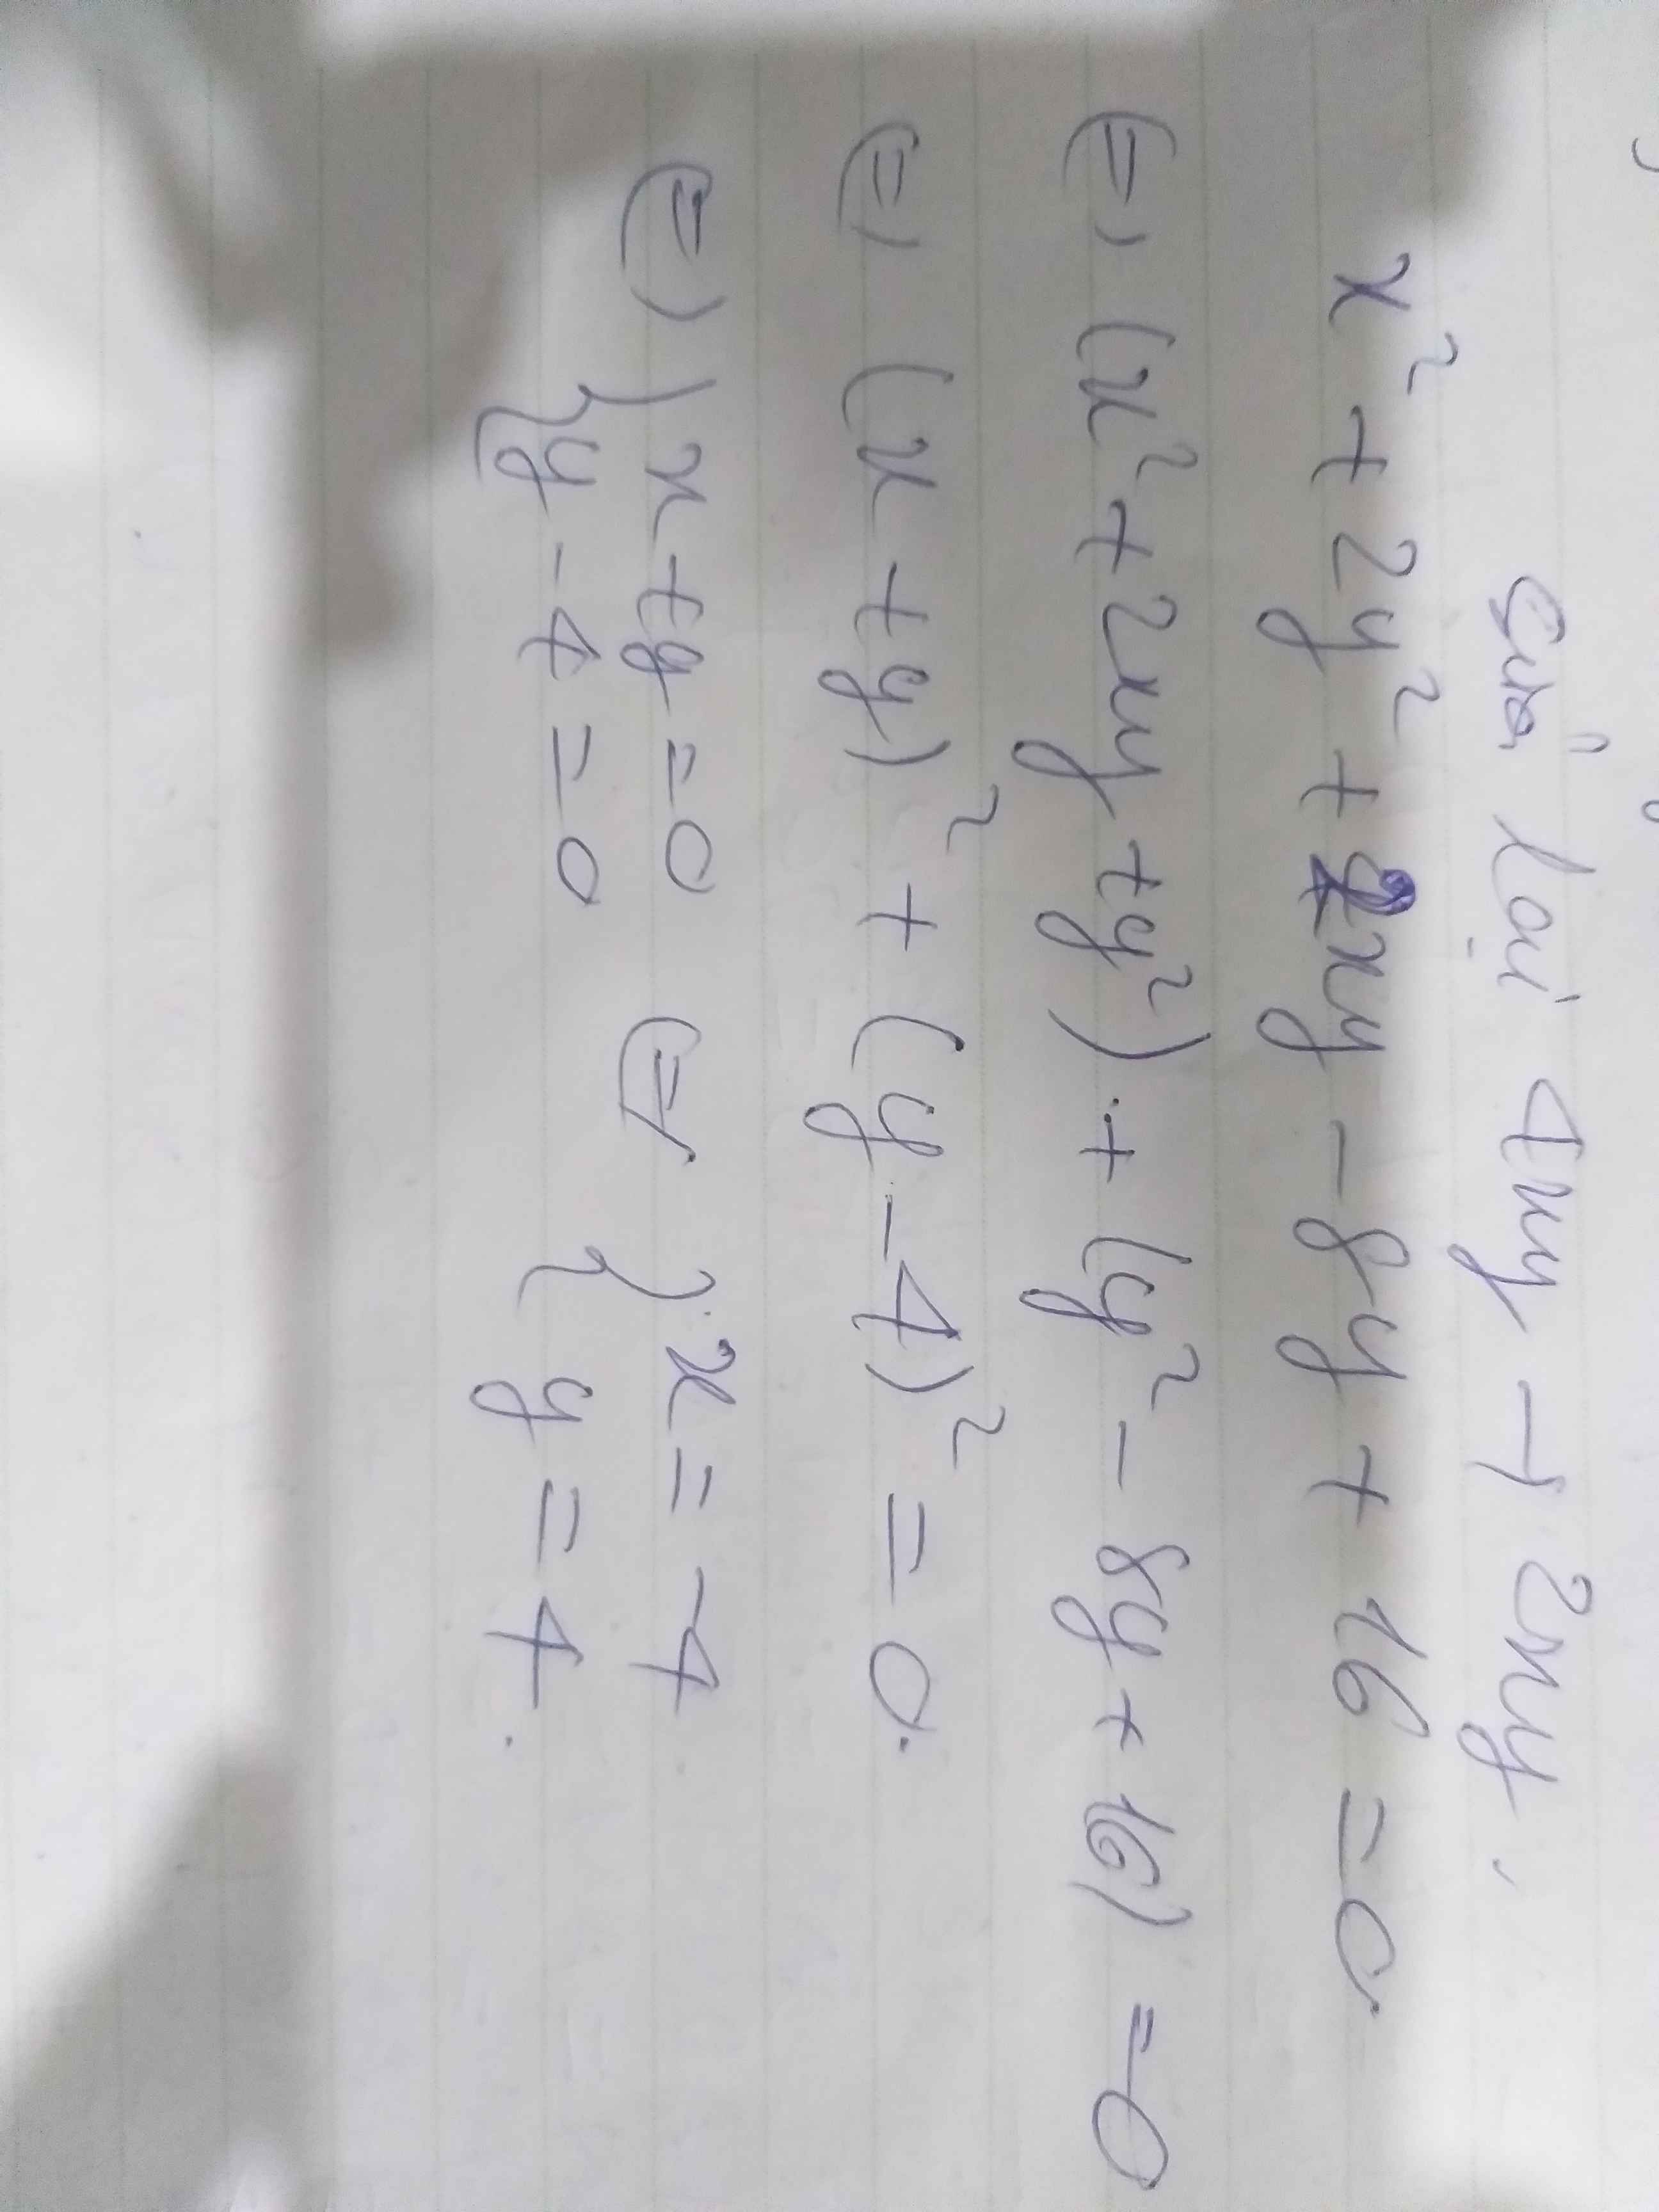 Sửa lại 4xy → 2xy.
x² + 2y² + 2xy - 8y + 16 = 0
⇔ (x² + 2xy + y²) + (y² - 8y + 16) = 0
⇔ (x + y)² + (y - 4)² = 0.
⇔ { x + y = 0 ⇔ { x = -4
{ y - 4 = 0 { y = 4.